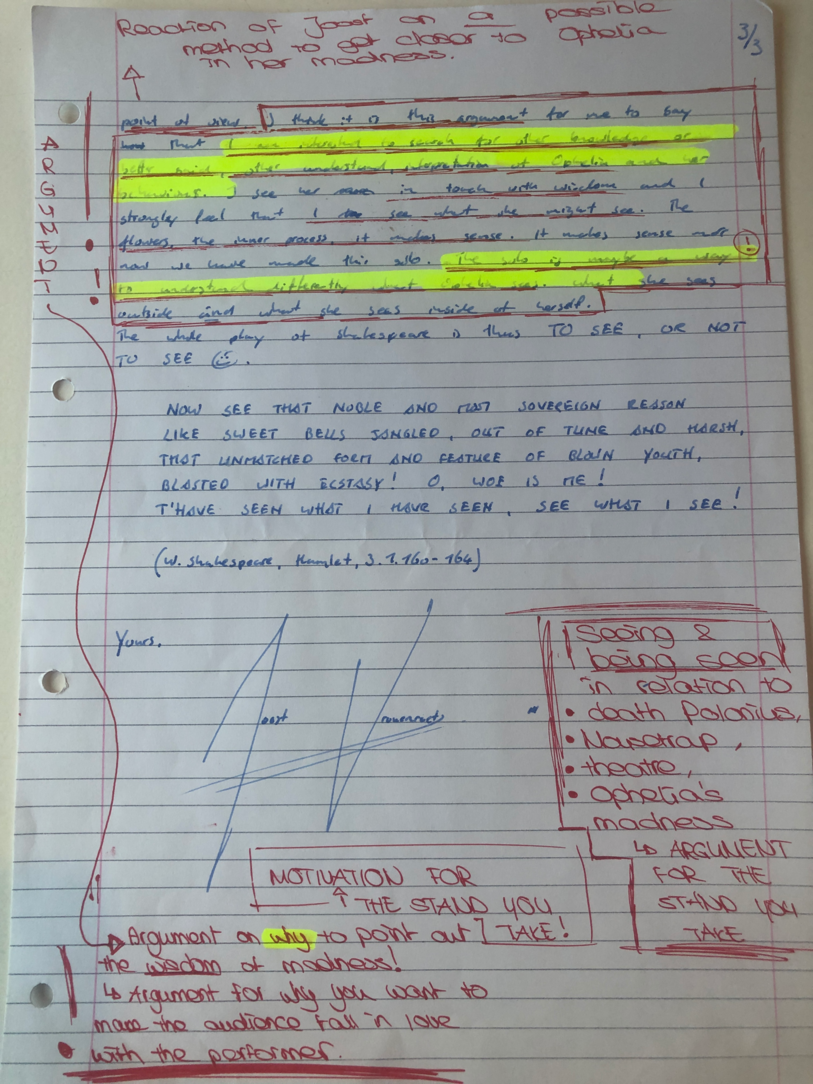 Reaction of Joost on a possible
method to get closer to Ophelia
in her madness.
3/3
ARGUMENT
point of view. I think it is this argument for me to say
now that I am interested to search for other knowledge or
better said, other understand, interpretation of Ophelia and her
behaviour. I see her in touch with wisdom and I
strongly feel that I see what she might see. The
flowers, the inner process, it makes sense. It makes sense
now we have made this solo. The solo is maybe a way
to understand differently what Ophelia sees. What she sees
outside and what she sees inside of herself.
The whole play of Shakespeare is thus TO SEE, OR NOT
TO SEE ☺.
NOW SEE THAT NOBLE AND MOST SOVEREIGN REASON
LIKE SWEET BELLS JANGLED, OUT OF TUNE AND HARSH,
THAT UNMATCHED FORM AND FEATURE OF BLOWN YOUTH,
BLASTED WITH ECSTASY! O, WOE IS ME!
T'HAVE SEEN WHAT I HAVE SEEN, SEE WHAT I SEE!
(W. Shakespeare, Hamlet, 3.1.160-164)
Yours,
Seeing &
being seen
in relation to
• death Polonius,
• Mousetrap,
• theatre,
• Ophelia's
madness
↳ ARGUMENT
FOR THE
STAND YOU
TAKE
MOTIVATION FOR
↑ THE STAND YOU
TAKE!
Argument on why to point out
the wisdom of madness!
↳ Argument for why you want to
make the audience fall in love
• with the performer.